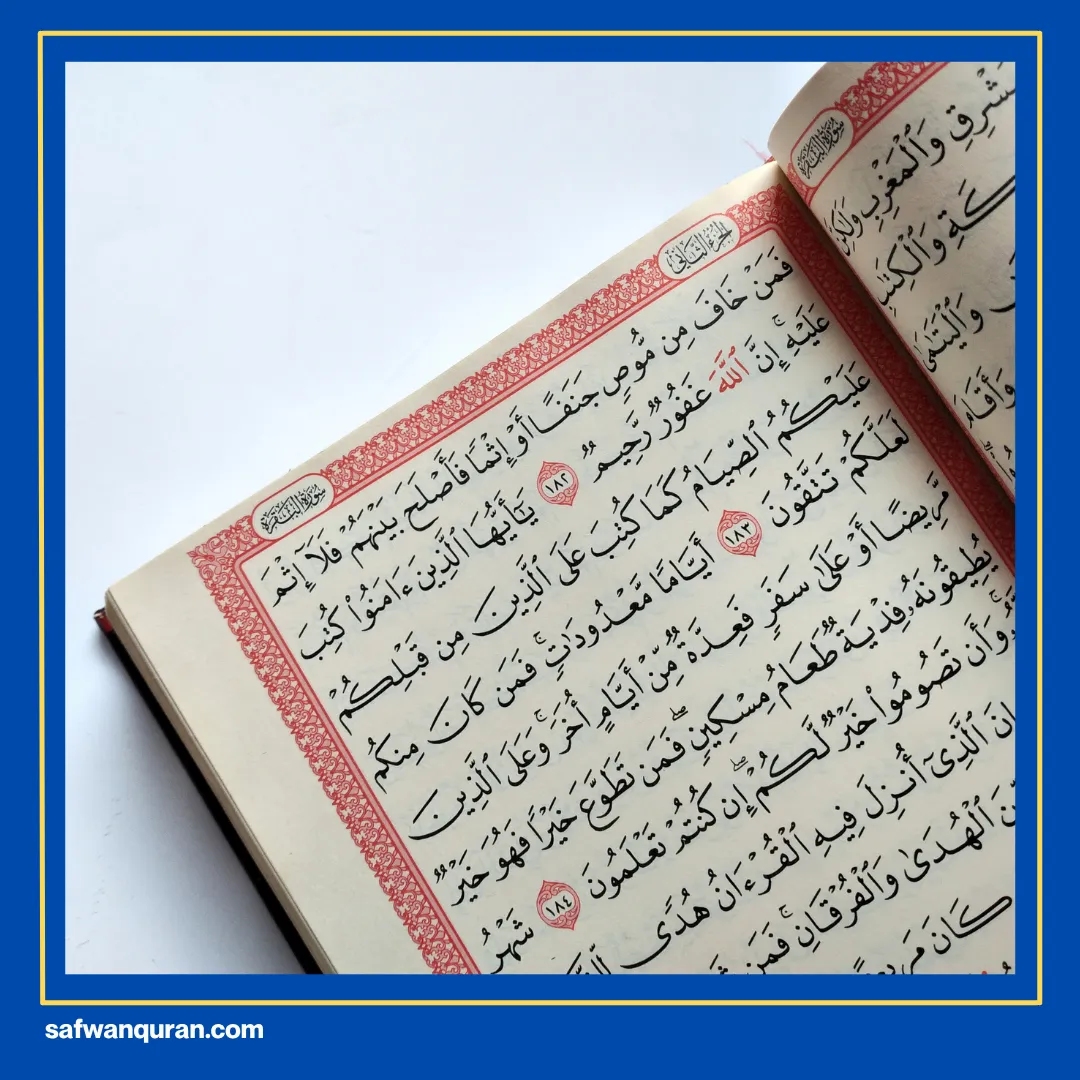 سُورَةُ الْبَقَرَةِ
وَٱلْمَغْرِبِ
وَٱلْيَتَٰمَىٰ
الجزء الثاني
سُورَةُ الْبَقَرَةِ
فَمَنْ خَافَ مِن مُّوصٍ جَنَفًا أَوْ إِثْمًا فَأَصْلَحَ بَيْنَهُمْ فَلَآ إِثْمَ
عَلَيْهِ ۚ إِنَّ ٱللَّهَ غَفُورٌ رَّحِيمٌ ١٨٢ يَٰٓأَيُّهَا ٱلَّذِينَ ءَامَنُوا۟ كُتِبَ
عَلَيْكُمُ ٱلصِّيَامُ كَمَا كُتِبَ عَلَى ٱلَّذِينَ مِن قَبْلِكُمْ
لَعَلَّكُمْ تَتَّقُونَ ١٨٣ أَيَّامًا مَّعْدُودَاتٍ ۚ فَمَن كَانَ مِنكُم
مَّرِيضًا أَوْ عَلَىٰ سَفَرٍ فَعِدَّةٌ مِّنْ أَيَّامٍ أُخَرَ ۚ وَعَلَى ٱلَّذِينَ
يُطِيقُونَهُۥ فِدْيَةٌ طَعَامُ مِسْكِينٍ ۖ فَمَن تَطَوَّعَ خَيْرًا فَهُوَ خَيْرٌ
وَأَن تَصُومُوا۟ خَيْرٌ لَّكُمْ ۖ إِن كُنتُمْ تَعْلَمُونَ ١٨٤ شَهْرُ
ٱلَّذِىٓ أُنزِلَ فِيهِ ٱلْقُرْءَانُ هُدًى
ٱلْهُدَىٰ وَٱلْفُرْقَانِ ۚ فَمَن
كَانَ
safwanquran.com